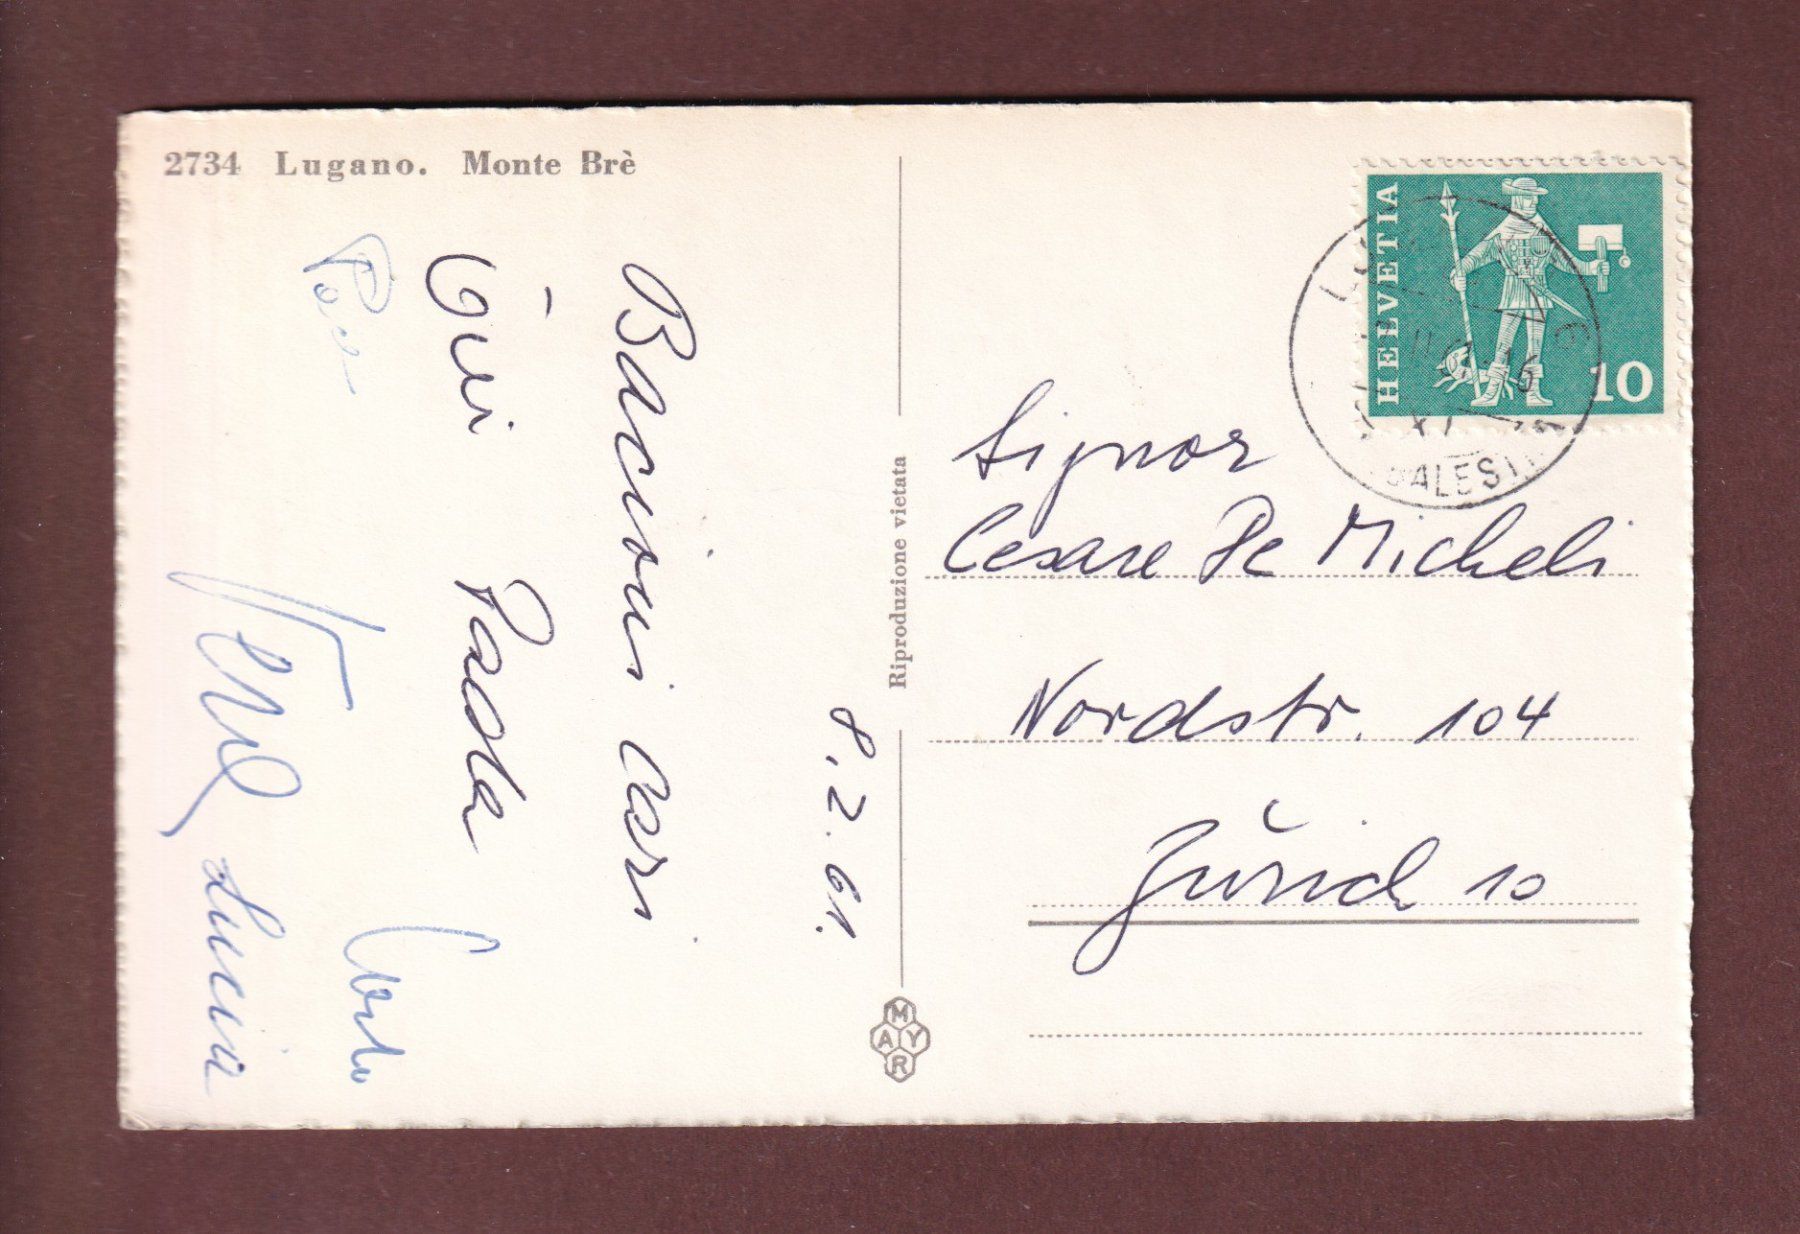 2734 Lugano. Monte Brè
8.2.61.
Bacioni cari
Paola
Carlo
Lucia
Riproduzione vietata
MAYR
HELVETIA
10
Signor
Cesare De Micheli
Nordstr. 104
Zürich 10